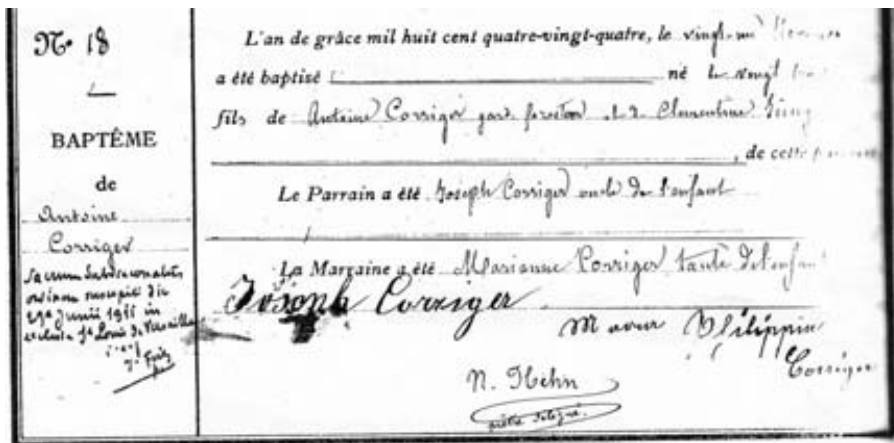 No 18
BAPTÊME
de
Antoine
Corriger
Sacrum Subdiaconatus
ordinem suscepit die
29a Junii 1911 in
St Louis de Versailles
L'an de grâce mil huit cent quatre-vingt-quatre, le vingt
a été baptisé né le vingt
fils de Antoine Corriger garde forestier et de Clementine
, de cette
Le Parrain a été Joseph Corriger oncle de l'enfant
La Marraine a été Marianne Corriger tante de l'enfant
Joseph Corriger
Philippine
Corriger
N. Hehn
prêtre délégué.